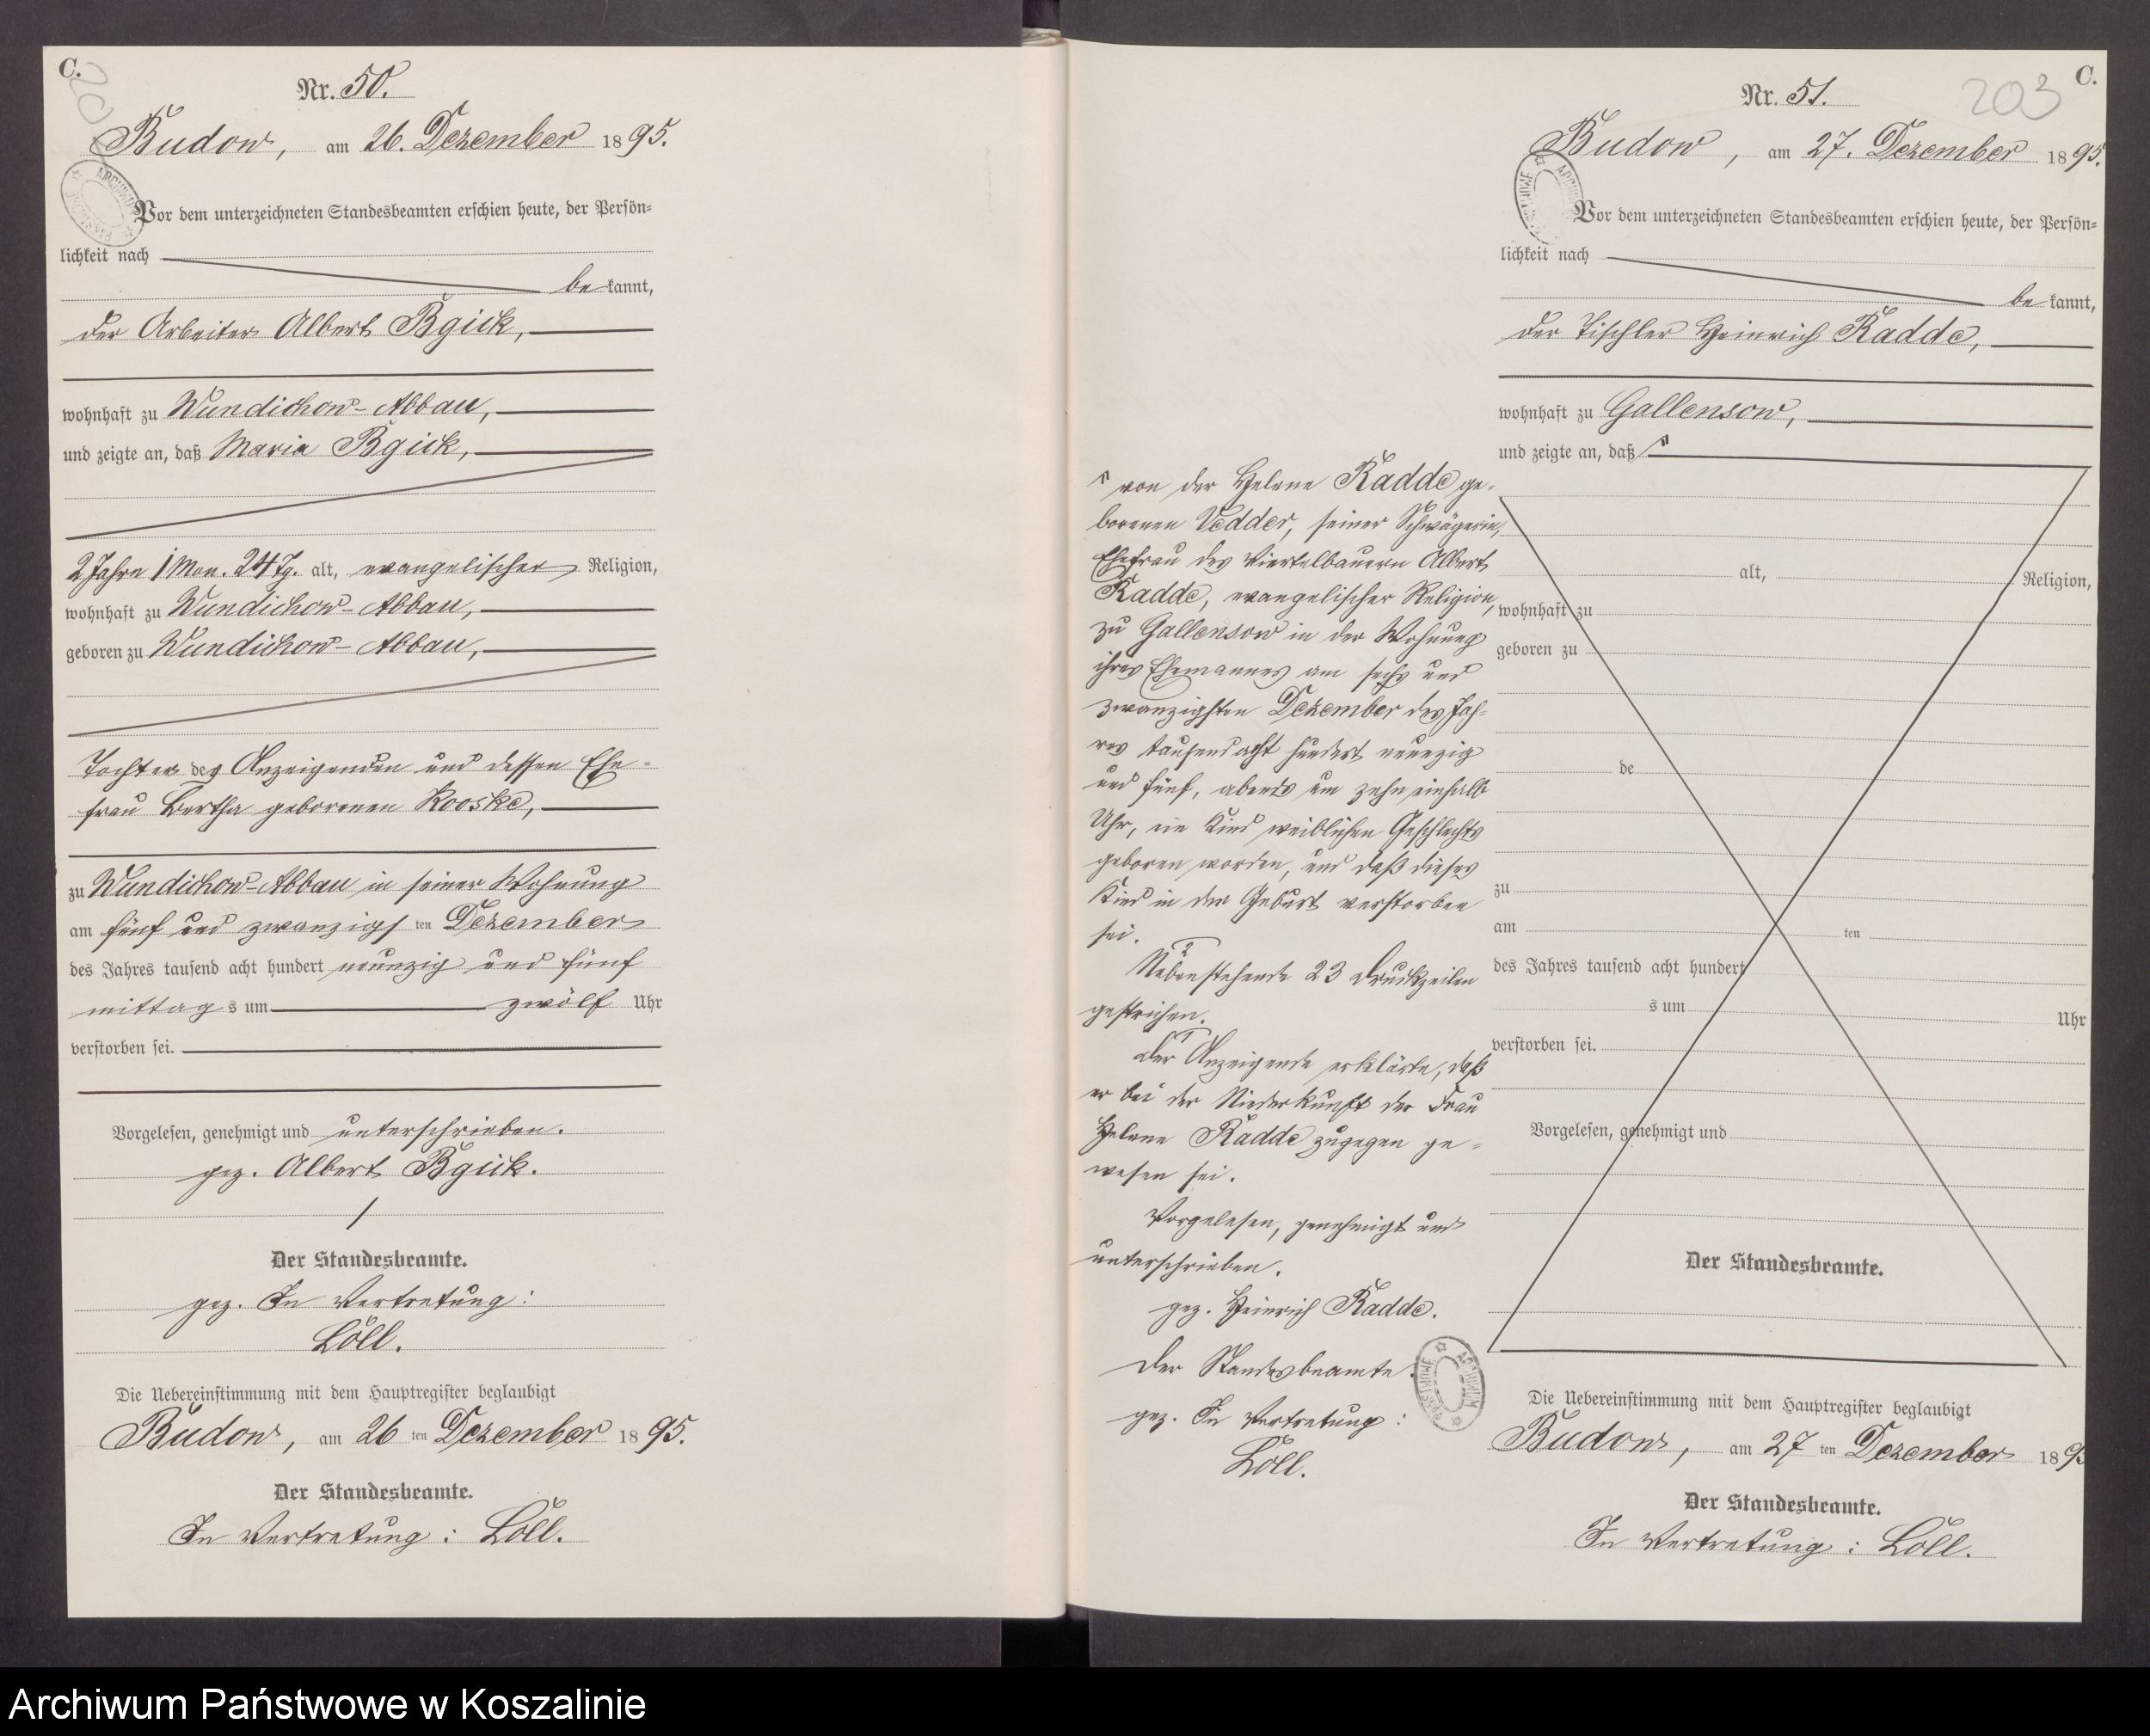 C.
Nr. 50.
Budow, am 26. Dezember 1895.
Vor dem unterzeichneten Standesbeamten erschien heute, der Persön=
lichkeit nach
be kannt,
der Arbeiter Albert Bgick,
wohnhaft zu Wundichow-Abbau,
und zeigte an, daß Maria Bgick,
2 Jahre 1 Mon. 24 Tg. alt, evangelischer Religion,
wohnhaft zu Wundichow-Abbau,
geboren zu Wundichow-Abbau,
Tochter des Anzeigenden und dessen Ehe-
frau Bertha geborenen Kooske,
zu Wundichow-Abbau in seiner Wohnung
am fünf und zwanzigs ten Dezember
des Jahres tausend acht hundert neunzig und fünf
mittag s um zwölf Uhr
verstorben sei.
Vorgelesen, genehmigt und unterschrieben.
gez. Albert Bgick.
Der Standesbeamte.
gez. In Vertretung:
Löll.
Die Uebereinstimmung mit dem Hauptregister beglaubigt
Budow, am 26 ten Dezember 1895.
Der Standesbeamte.
In Vertretung: Löll.
C.
203
Nr. 51.
Budow, am 27. Dezember 1895.
Vor dem unterzeichneten Standesbeamten erschien heute, der Persön=
lichkeit nach
be kannt,
der Tischler Heinrich Radde,
wohnhaft zu Gallensow,
und zeigte an, daß
von der Helene Radde ge-
borenen Vedder, seiner Schwägerin,
Ehefrau des Viertelbauern Albert
Radde, evangelischer Religion,
zu Gallensow in der Wohnung
ihres Ehemannes am sechs und
zwanzigsten Dezember des Jah-
res tausend acht hundert neunzig
und fünf, abends um zehn einhalb
Uhr, ein Kind weiblichen Geschlechts
geboren worden, und daß dieses
Kind in der Geburt verstorben
sei.
Nebenstehende 23 Druckzeilen
gestrichen.
Der Anzeigende erklärte, daß
er bei der Niederkunft der Frau
Helene Radde zugegen ge-
wesen sei.
Vorgelesen, genehmigt und
unterschrieben.
gez. Heinrich Radde.
Der Standesbeamte.
gez. In Vertretung:
Löll.
alt, Religion,
wohnhaft zu
geboren zu
de
zu
am ten
des Jahres tausend acht hundert
s um Uhr
verstorben sei.
Vorgelesen, genehmigt und
Der Standesbeamte.
Die Uebereinstimmung mit dem Hauptregister beglaubigt
Budow, am 27 ten Dezember 189
Der Standesbeamte.
In Vertretung: Löll.
Archiwum Państwowe w Koszalinie